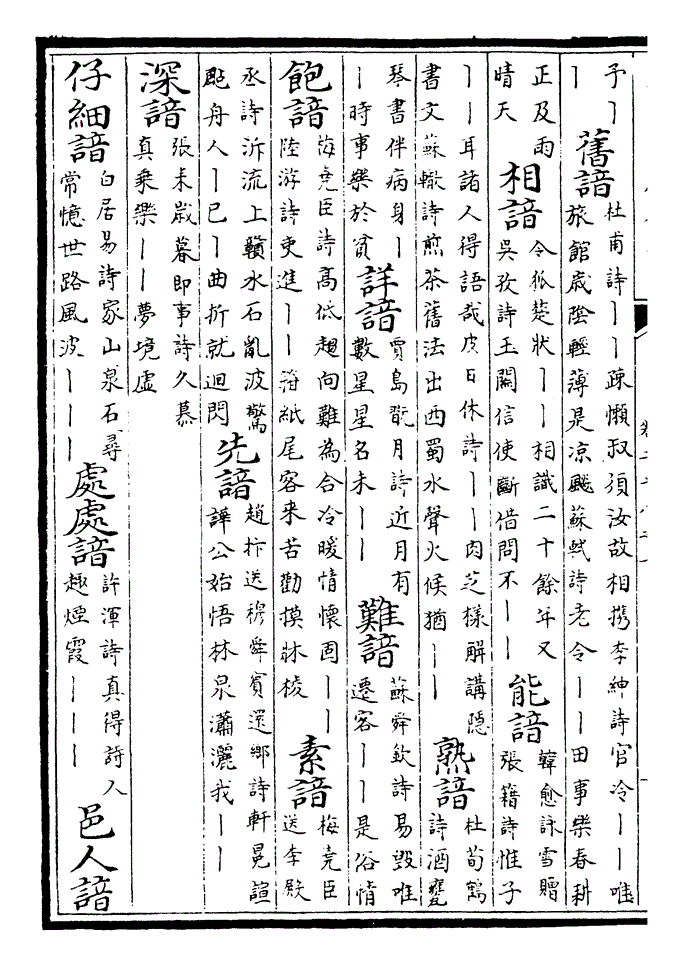 予丨
丨
舊諳
杜甫詩丨丨疎懶叔須汝故相携李紳詩官冷丨丨唯
旅館歳陰輕薄是凉颷蘇軾詩老令丨丨田事樂春耕
正及雨
晴天
相諳
令狐楚狀丨丨相識二十餘年又
吳孜詩玉關信使斷借問不丨丨
能諳
韓愈詠雪贈
張籍詩惟子
丨丨耳諸人得語哉皮日休詩丨丨肉芝様解講隠
書文蘇轍詩煎茶舊法出西蜀水聲火候猶丨丨
熟諳
杜荀鶴
詩酒甕
琴書伴病身丨
丨時事樂於貧
詳諳
賈島翫月詩近月有
數星星名未丨丨
難諳
蘇舜欽詩易毁唯
遷客丨丨是俗情
飽諳
梅堯臣詩髙低趨向難為合冷暖情懐固丨丨
陸游詩吏進丨丨箝紙尾客来苦勸摸牀棱
素諳
梅堯臣
送李殿
丞詩泝流上贛水石亂波驚
颭舟人丨已丨曲折就迴閃
先諳
趙抃送穆舜賔還鄉詩軒冕諠
譁公始悟林泉瀟灑我丨丨
深諳
張耒歳暮即事詩久慕
真乗樂丨丨夢境虛
仔細諳
白居易詩家山泉石尋
常憶世路風波丨丨丨
處處諳
許渾詩真得詩人
趣煙霞丨丨丨
邑人諳